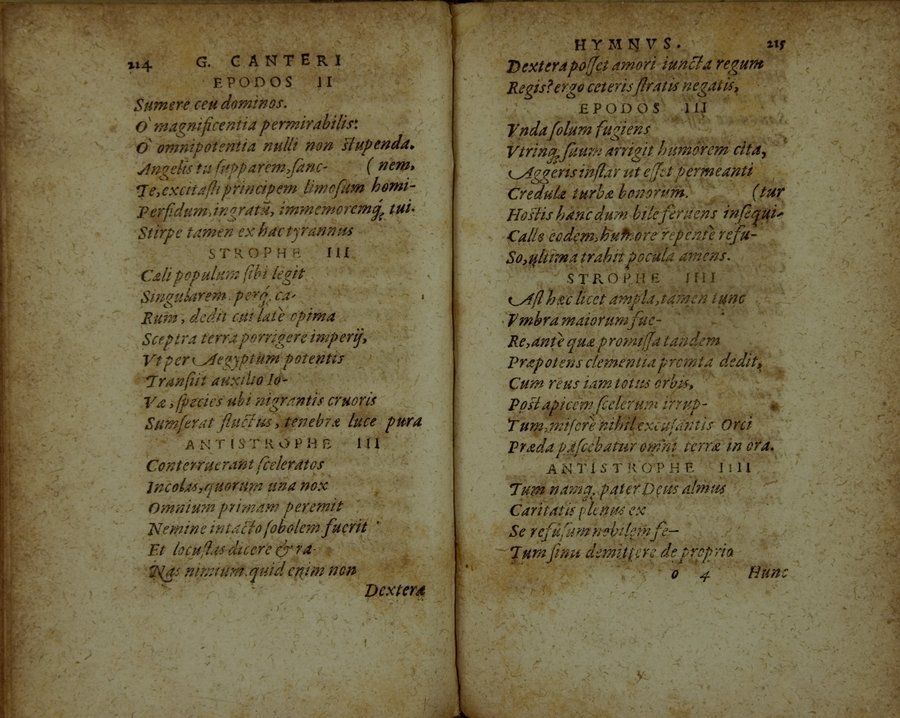 214 G. CANTERI
EPODOS II
Sumere ceu dominos.
O' magnificentia permirabilis:
O' omnipotentia nulli non stupenda.
Angelis tu supparem, sanc- (nem.
Te, excitasti principem limosum homi-
Perfidum, ingratũ, immemoremq́; tui.
Stirpe tamen ex hac tyrannus
STROPHE III
Cæli populum sibi legit
Singularem, perq́; ca-
Rum, dedit cui latè opima
Sceptra terra porrigere imperij,
Vt per Aegyptum potentis
Transiit auxilio Io-
Væ, species ubi nigrantis cruoris
Sumserat fluctus, tenebræ luce pura
ANTISTROPHE III
Conterruerant sceleratos
Incolas, quorum una nox
Omnium primam peremit
Nemine intacto sobolem fuerit
Et locustas dicere & ra-
Nas nimium, quid enim non
Dextera
HYMNVS. 215
Dextera posset amori iuncta regum
Regis? ergo ceteris stratis negatis,
EPODOS III
Vnda solum fugiens
Vtrinq; suum arrigit humorem cita,
Aggeris instar ut esset permeanti
Credulæ turbæ bonorum. (tur
Hostis hanc dum bile feruens insequi-
Calle eodem, humore repentè refu-
So, ultima trahit pocula amens.
STROPHE IIII
Ast hæc licet ampla, tamen tunc
Vmbra maiorum fue-
Re, antè quæ promissa tandem
Præpotens clementia promta dedit,
Cum reus iam totus orbis,
Post apicem scelerum irrup-
Tum, miserè nihil excusantis Orci
Præda pascebatur omni terræ in ora.
ANTISTROPHE IIII
Tum namq; pater Deus almus
Caritatis plenus ex
Se refusum nobilem fe-
Tum sinu demittere de proprio
o 4 Hunc